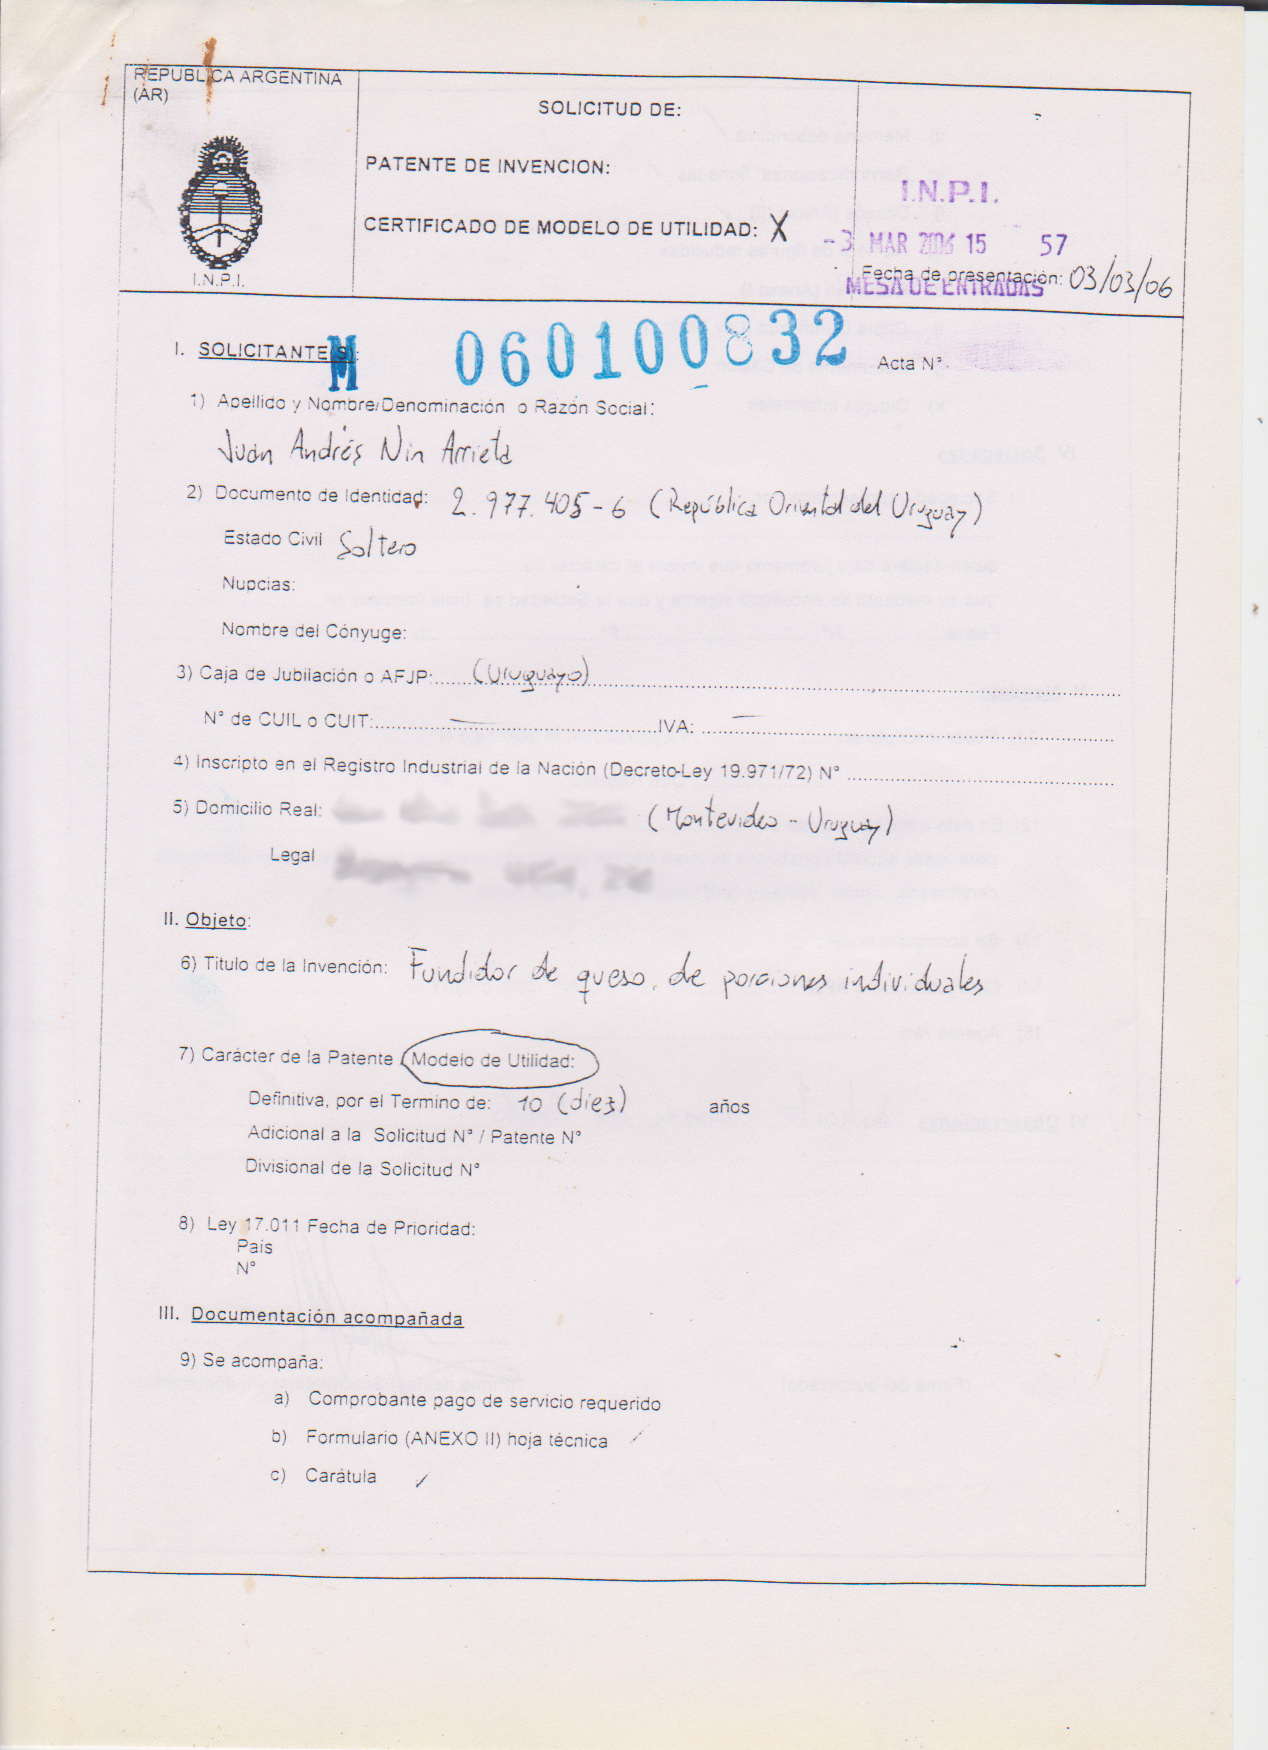 REPUBLICA ARGENTINA
(AR)
I.N.P.I.
SOLICITUD DE:
PATENTE DE INVENCION:
CERTIFICADO DE MODELO DE UTILIDAD: X
I.N.P.I.
- 3 MAR 2006 15 57
Fecha de presentación: 03/03/06
MESA DE ENTRADAS
M 060100832
I. SOLICITANTE(S):
Acta N°
1) Apellido y Nombre/Denominación o Razón Social:
Juan Andrés Nin Arrieta
2) Documento de Identidad: 2.977.405-6 (República Oriental del Uruguay)
Estado Civil Soltero
Nupcias:
Nombre del Cónyuge:
3) Caja de Jubilación o AFJP: (Uruguayo)
N° de CUIL o CUIT: — IVA: —
4) Inscripto en el Registro Industrial de la Nación (Decreto-Ley 19.971/72) N°
5) Domicilio Real: (Montevideo - Uruguay)
Legal
II. Objeto:
6) Titulo de la Invención: Fundidor de queso, de porciones individuales
7) Carácter de la Patente / Modelo de Utilidad:
Definitiva, por el Termino de: 10 (diez) años
Adicional a la Solicitud N° / Patente N°
Divisional de la Solicitud N°
8) Ley 17.011 Fecha de Prioridad:
País
N°
III. Documentación acompañada
9) Se acompaña:
a) Comprobante pago de servicio requerido
b) Formulario (ANEXO II) hoja técnica
c) Carátula